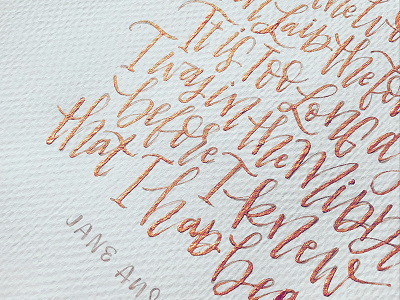 Laid the fo
It is Too Long ag
I was in the Midd
before I knew
that I had
beg
JANE AUS